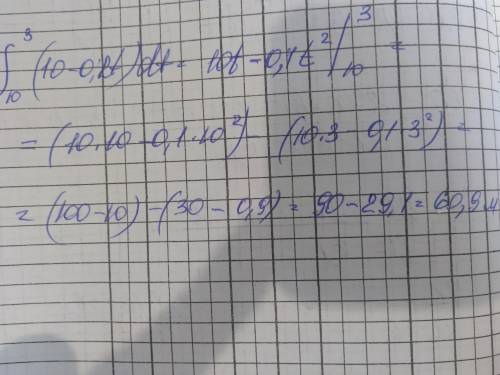 ∫₁₀³ (10-0,2t)dt = 10t - 0,1t² |₁₀³ =
= (10·10-0,1·10²) - (10·3-0,1·3²) =
= (100-10) - (30-0,9) = 90-29,1 = 60,9 м